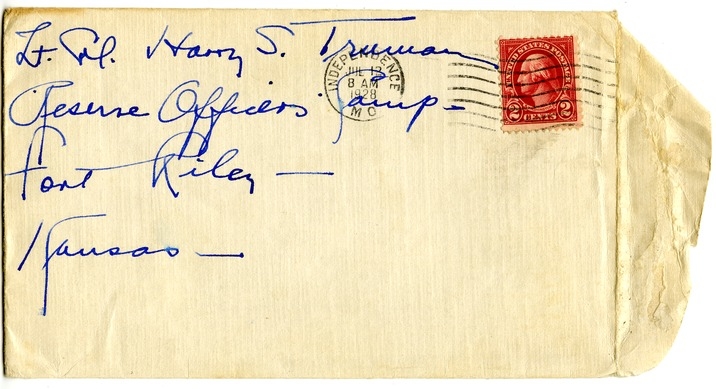 Lt. Col. Harry S. Truman
Reserve Officers' Camp —
Fort Riley —
Kansas —
INDEPENDENCE
JUL 12
8 AM
1928
MO
UNITED STATES POSTAGE
2 CENTS 2